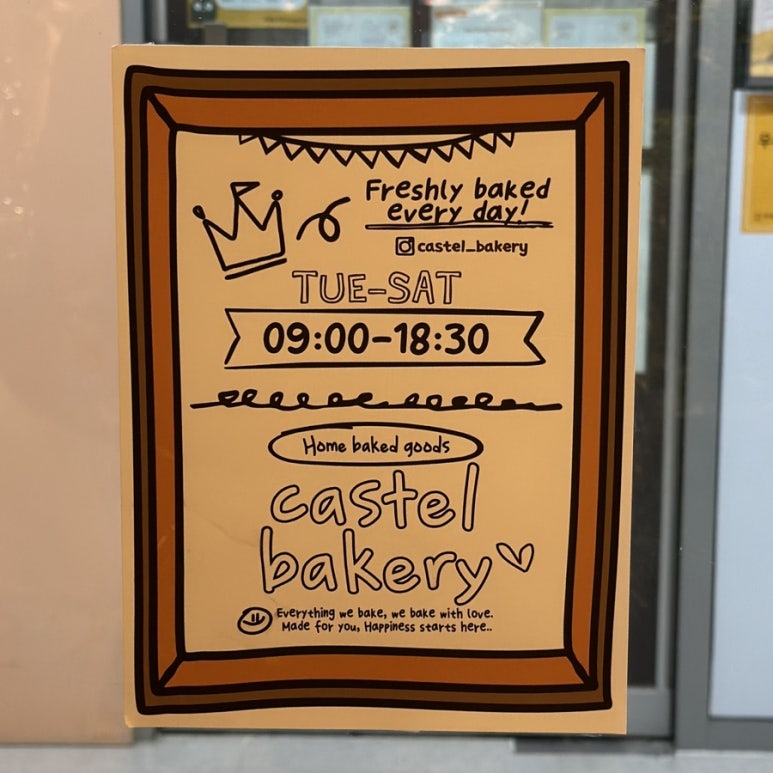 Freshly baked
every day!
castel_bakery
TUE-SAT
09:00-18:30
Home baked goods
castel
bakery
Everything we bake, we bake with love.
Made for you, Happiness starts here..